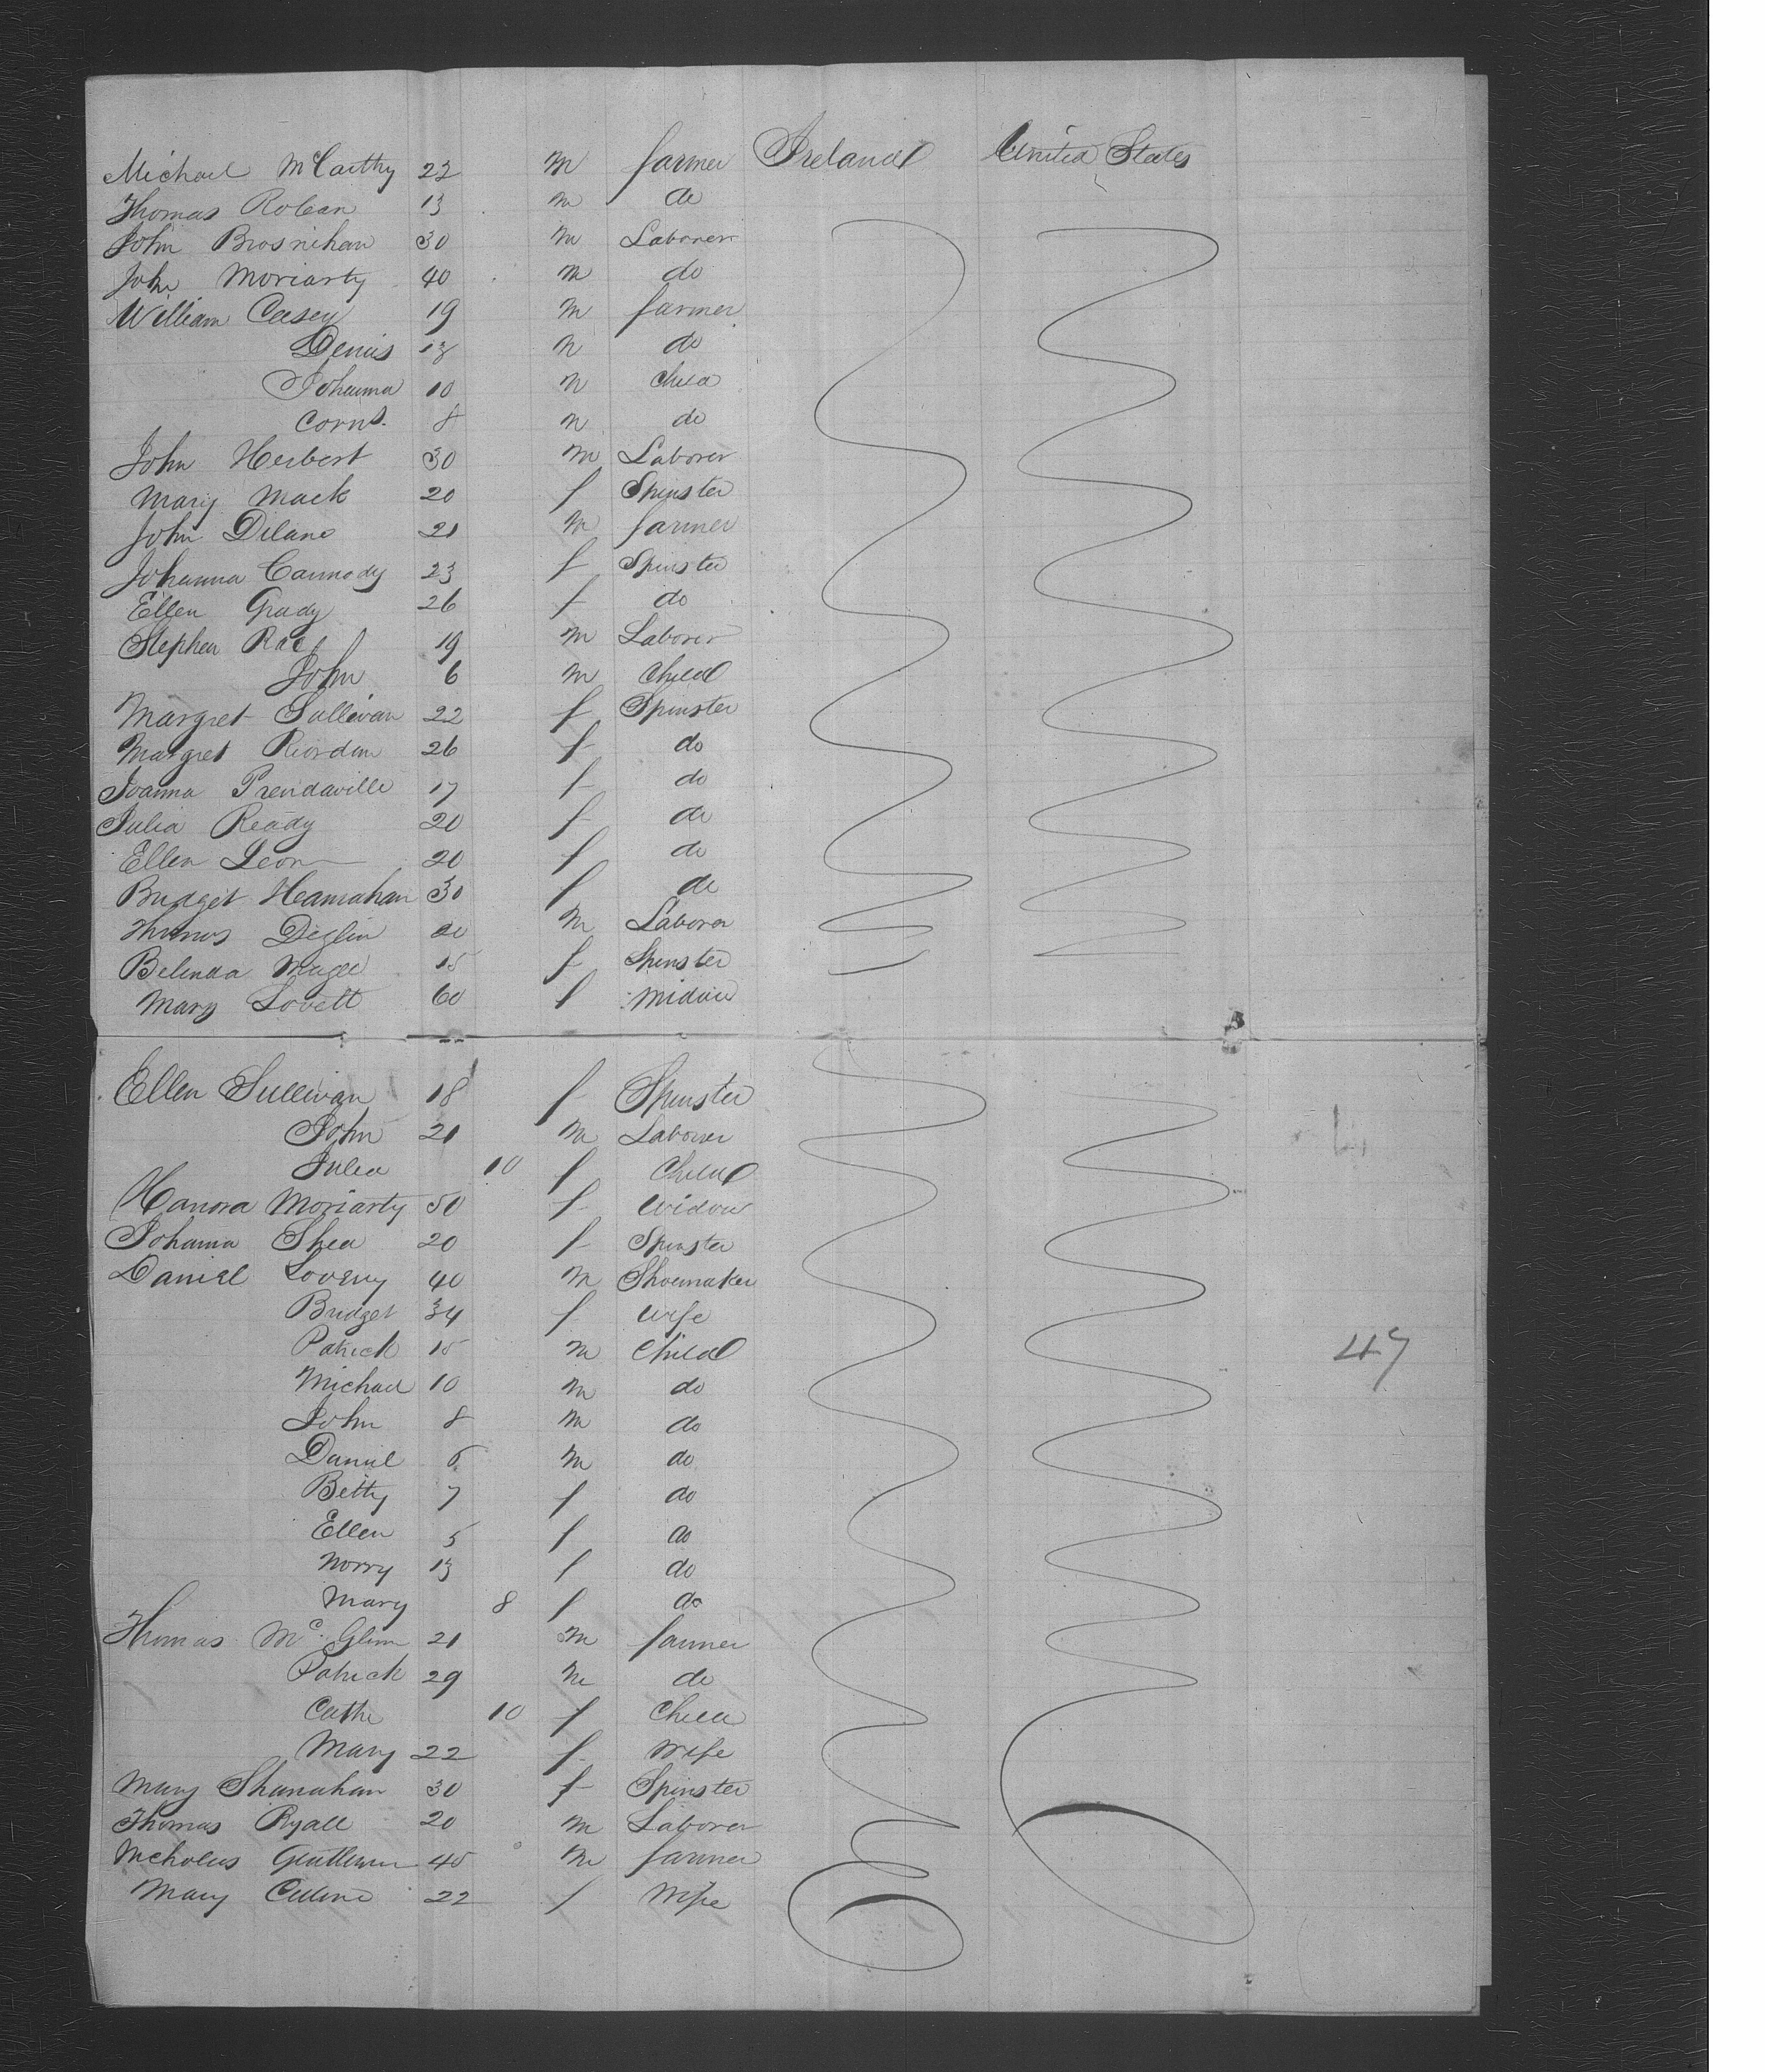 Michael McCarthy 22 m farmer Ireland United States
Thomas Rolean 13 m do
John Brosnihan 30 m Laborer
John Moriarty 40 m do
William Casey 19 m farmer
Denis 13 m do
Johanna 10 m Child
Corns. 8 m do
John Herbert 30 m Laborer
Mary Mack 20 f Spinster
John Dilane 21 m farmer
Johanna Cannody 23 f Spinster
Ellen Grady 26 f do
Stephen Rae 19 m Laborer
John 6 m Child
Margret Sullivan 22 f Spinster
Margret Riordan 26 f do
Joanna Prendaville 17 f do
Julia Ready 20 f do
Ellen Leon 20 f do
Bridget Hanrahan 30 f do
Thomas Deglin 20 m Laborer
Belinda Magee 15 f Spinster
Mary Lovett 60 f Widow
Ellen Sullivan 18 f Spinster
John 21 m Laborer
Julia 10 f Child
Hanora Moriarty 50 f Widow
Johanna Shea 20 f Spinster
Daniel Loveny 40 m Shoemaker
Bridget 34 f Wife
Patrick 15 m Child
Michael 10 m do
John 8 m do
Daniel 6 m do
Betty 7 f do
Ellen 5 f do
Norry 13 f do
Mary 8 f do
Thomas Mc. Glinn 21 m farmer
Patrick 29 m do
Cathe 10 f Child
Mary 22 f Wife
Mary Shanahan 30 f Spinster
Thomas Ryall 20 m Laborer
Nicholas 45 m farmer
Mary 22 f Wife
47